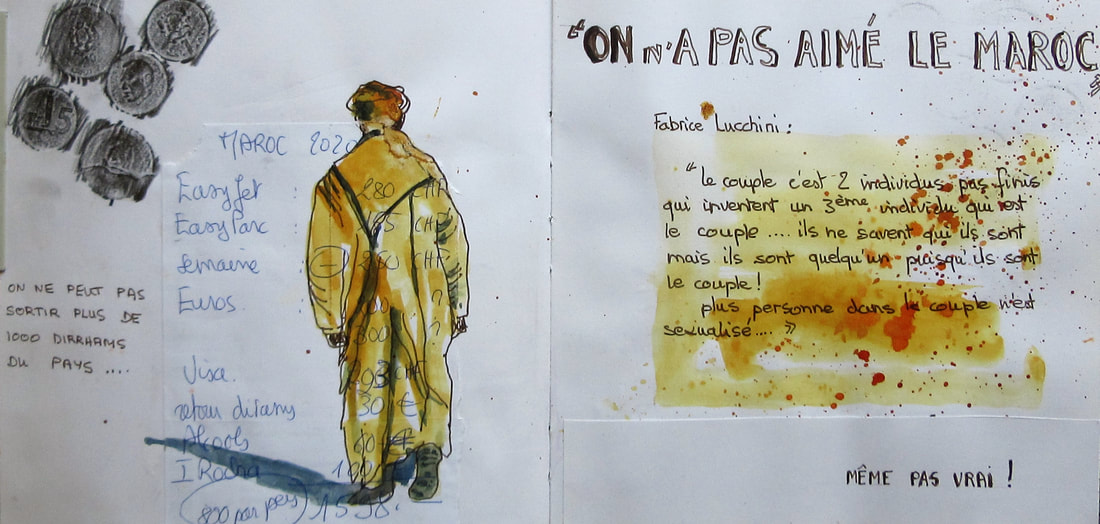 MAROC 2020
EasyJet : 280 CHF
EasyParc : 185 CHF
semaine CHF
Euros ?
300 ?
Visa. CHF
retour dirams 30 €
Alcools
I
(800 par pers) 1598.-
ON NE PEUT PAS
SORTIR PLUS DE
1000 DIRRHAMS
DU PAYS ....
"ON N'A PAS AIMÉ LE MAROC"
Fabrice Lucchini :
" le couple c'est 2 individus pas finis
qui inventent un 3ème individu qui est
le couple .... ils ne savent qui ils sont
mais ils sont quelqu'un puisqu'ils sont
le couple !
plus personne dans le couple n'est
sexualisé.... "
MÊME PAS VRAI !